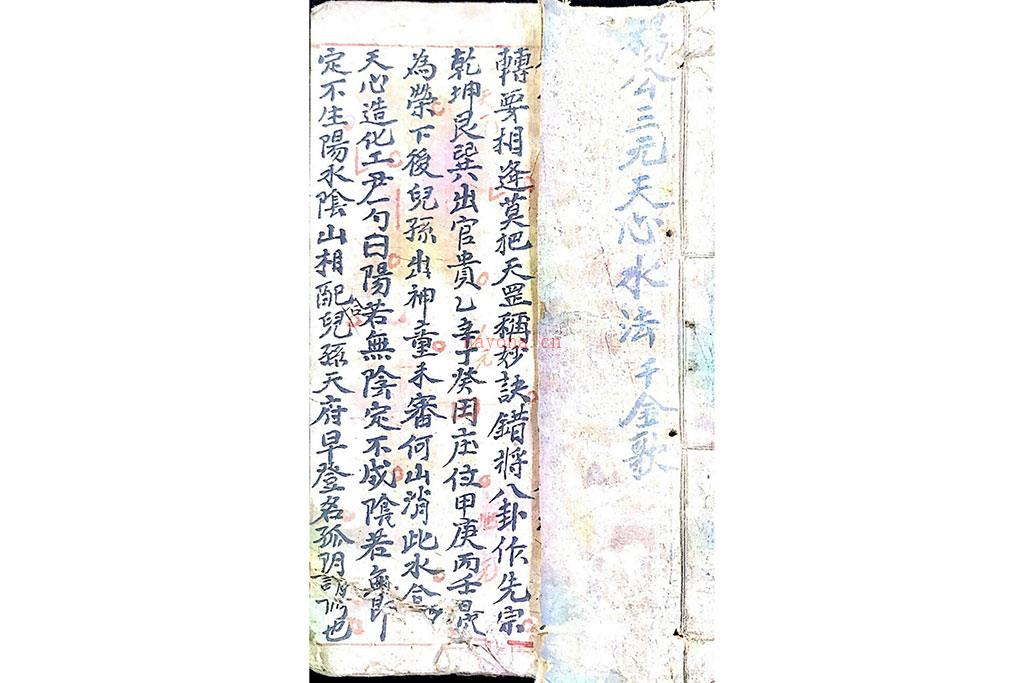 楊公三元天心水法千金歌
轉要相逢莫把天罡稱妙訣錯將八卦作先宗
乾坤艮巽出官貴乙辛丁癸田庄位甲庚丙壬最
為榮下後兒孫出神童未審何山消此水合
天心造化工尹一勺曰陽若無陰定不成陰若無陽
定不生陽水陰山相配合兒孫天府早登名孤陽也
元
元
nayona.cn